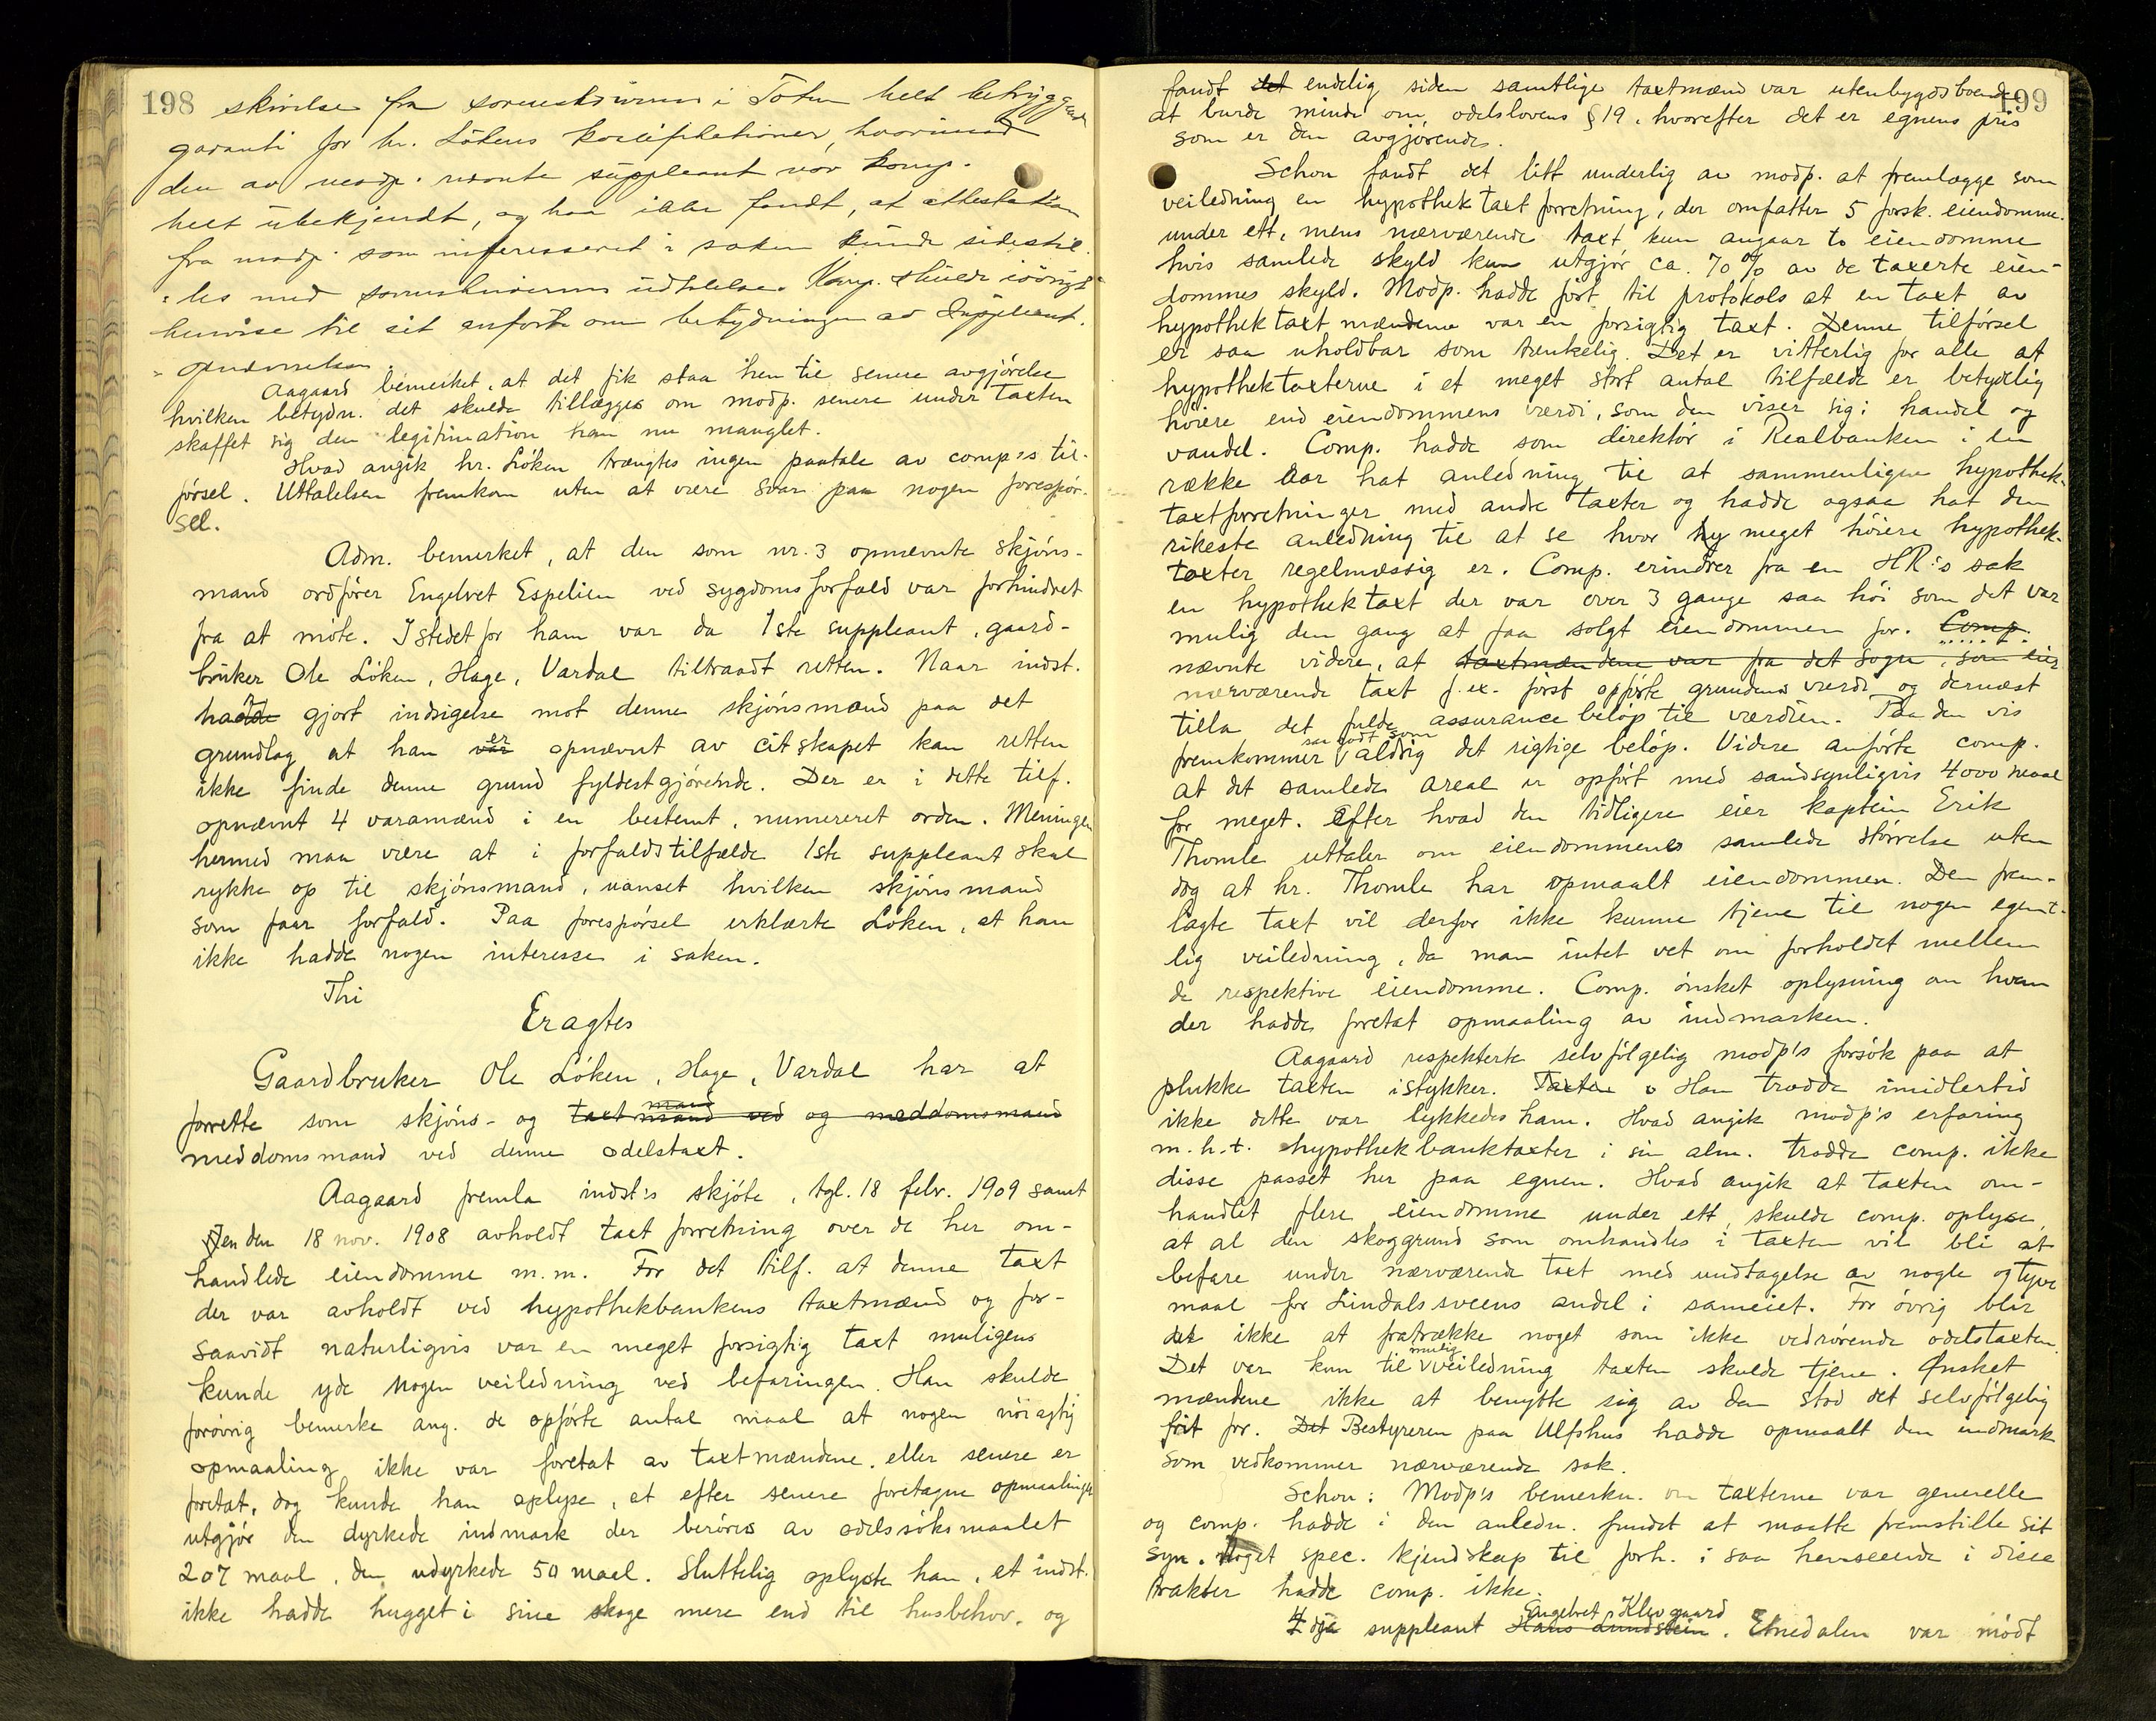 198
skrivelse fra sorenskriveren i Toten helt betryggende
garanti for hr. Lökens kvalifikationer, hvorimod
den av modp. nævnte suppleant var komp.
helt ubekjendt, og han ikke fandt, at attestation
fra modp. som interesseret i saken kunde sidestil-
les med sorenskriverens udtalelse. Komp. skulde iövrigt
henvise til sit anförte om betydningen av Suppleant-
opnævnelsen.
Aagaard bemerket, at det fik staa hen til senere avgjörelse
hvilken betydn. det skulde tillægges om modp. senere under taxten
skaffet sig den legitimation han nu manglet.
Hvad angik hr. Löken trængtes ingen paatale av comp:s til-
försel. Uttalelsen fremkom uten at være svar paa nogen forespör-
sel.
Adm. bemerket, at den som nr. 3 opnævnte skjöns-
mand ordförer Engebret Espelien ved sygdomsforfald var forhindret
fra at möte. Istedet for ham var da 1ste suppleant, gaard-
bruker Ole Löken, Hage, Vardal tiltraadt retten. Naar indst.
hadde gjort indsigelse mot denne skjönsmand paa det
grundlag at han var er opnævnt av citskapet kan retten
ikke finde denne grund fyldestgjörende. Der er i dette tilf.
opnævnt 4 varamænd i en bestemt, numereret orden. Meningen
hermed maa være at i forfaldstilfælde 1ste suppleant skal
rykke op til skjönsmand, uanset hvilken skjönsmand
som faar forfald. Paa forespörsel erklærte Löken, at han
ikke hadde nogen interesse i saken.
Thi
Eragtes
Gaardbruker Ole Löken, Hage, Vardal har at
forrette som skjöns- og taxtmand mand ved og meddomsmand
meddomsmand ved denne odelstaxt.
Aagaard fremla indst:s skjöte, tgl. 18 febr. 1909 samt
den 18 nov. 1908 avholdt taxtforretning over de her om-
handlede eiendomme m.m. For det tilf. at denne taxt
der var avholdt ved hypothekbankens taxtmænd og for-
saavidt naturligvis var en meget forsigtig taxt muligens
kunde yde nogen veiledning ved befaringen. Han skulde
forövrig bemerke ang. de opförte antal maal at nogen nöiagtig
opmaaling ikke var foretat av taxtmændene, eller senere er
foretat, dog kunde han oplyse, at efter senere foretagne opmaalinger
utgjör den dyrkede indmark der beröres av odelssöksmaalet
207 maal, den udyrkede 50 maal. Sluttelig oplyste han, at indst.
ikke hadde hugget i sine skoge mere end til husbehov, og
199
fandt det endelig siden samtlige taxtmænd var utenbygdsboende
at burde minde om odelslovens § 19, hvorefter det er egnens pris
som er den avgjörende.
Schou fandt det litt underlig av modp. at fremlægge som
veiledning en hypothektaxtforretning, der omfatter 5 forsk. eiendomme
under ett, mens nærværende taxt kun angaar to eiendomme
hvis samlede skyld kun utgjör ca. 70% av de taxerte eien-
dommes skyld. Modp. hadde fört til protokols at en taxt av
hypothektaxtmændene var en forsigtig taxt. Denne tilförsel
er saa uholdbar som tænkelig. Det er vitterlig for alle at
hypothektaxterne i et meget stort antal tilfælde er betydelig
höiere end eiendommens værdi, som den viser sig i handel og
vandel. Comp. hadde som direktör i Realbanken i en
række aar hat anledning til at sammenligne hypothek-
taxtforretninger med andre taxter og hadde ogsaa hat den
rikeste anledning til at se hvor hy meget höiere hypothek-
taxter regelmæssig er. Comp. erindrer fra en HR:s sak
en hypothektaxt der var over 3 gange saa höi som det var
mulig den gang at faa solgt eiendommen for. Comp.
nævnte videre, at taxtmændene var fra det sogn, som eier
nærværende taxt f.ex. först opförte grundens værdi og dernæst
tilla det fulde assurancebelöp til værdien. Paa den vis
fremkommer saa godt som aldrig det rigtige belöp. Videre anförte comp.
at det samlede areal er opfört med sandsynligvis 4000 maal
for meget. Efter hvad den tidligere eier kaptein Erik
Thomle uttaler om eiendommenes samlede störrelse uten
dog at hr. Thomle har opmaalt eiendommen. Den frem-
lagte taxt vil derfor ikke kunne tjene til nogen egent-
lig veiledning, da man intet vet om forholdet mellem
de respektive eiendomme. Comp. önsket oplysning om hvem
der hadde foretat opmaaling av indmarken.
Aagaard respekterte selvfölgelig modp's forsök paa at
plukke taxten istykker. Taxten Han trodde imidlertid
ikke dette var lykkedes ham. Hvad angik modp's erfaring
m.h.t. hypothekbanktaxter i sin alm. trodde comp. ikke
disse passet her paa egnen. Hvad angik at taxten om-
handlet flere eiendomme under ett, skulde comp. oplyse,
at al den skoggrund som omhandles i taxten vil bli at
befare under nærværende taxt med undtagelse av nogle og tyve
maal for Lindalssveens andel i sameiet. For övrig blir
det ikke at fratrække noget som ikke vedrörende odelstaxten.
Det var kun til mulig veiledning taxten skulde tjene. Önsket
mændene ikke at benytte sig av den stod det selvfölgelig
frit for. Det Bestyreren paa Ulfshus hadde opmaalt den indmark
som vedkommer nærværende sak.
Schou: Modp's bemerkn. om taxterne var generelle
og comp. hadde i den anledn. fundet at maatte fremstille sit
syn. Noget spec. kjendskap til forh. i saa henseende i disse
trakter hadde comp. ikke.
4 dje suppleant Hans Lundstein Engebret Klevgaard, Etnedalen var mödt